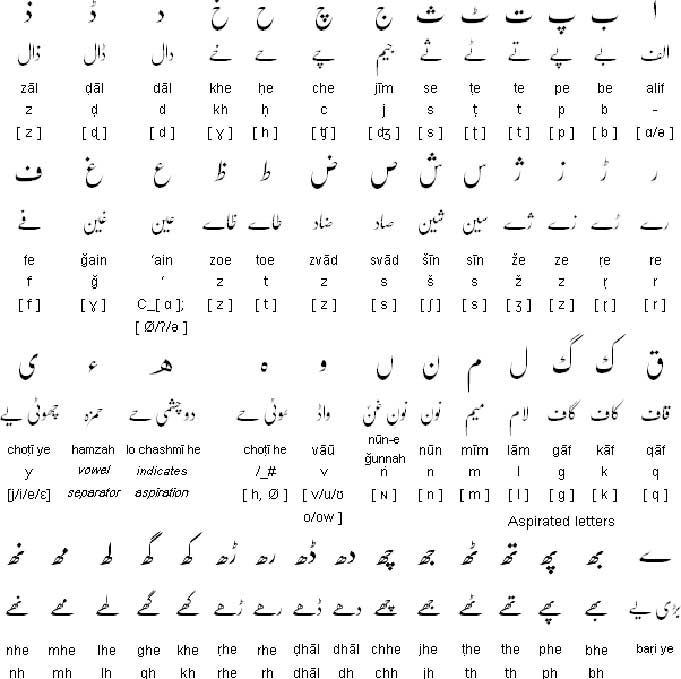 ا ب پ ت ٹ ث ج چ ح خ د ڈ ذ
الف بے پے تے ٹے ثے جیم چے حے خے دال ڈال ذال
zāl ḍāl dāl khe ḥe che jīm se ṭe te pe be alif
z ḍ d kh ḥ c j s ṭ t p b -
[ z ] [ ɖ ] [ d ] [ ɣ ] [ h ] [ ʧ ] [ ʤ ] [ s ] [ ʈ ] [ t ] [ p ] [ b ] [ ɑ/ə ]
ر ڑ ز ژ س ش ص ض ط ظ ع غ ف
رے ڑے زے ژے سین شین صاد ضاد طاے ظاے عین غین فے
fe ğain ‘ain zoe toe zvād svād šīn sīn že ze ṛe re
f ğ ‘ z t z s š s ž z ṛ r
[ f ] [ ɣ ] C_[ ɑ ]; [ z ] [ t ] [ z ] [ s ] [ ʃ ] [ s ] [ ʒ ] [ z ] [ ɽ ] [ r ]
[ Ø/ʔ/ə ]
ق ک گ ل م ن ں و ہ ھ ء ی
قاف کاف گاف لام میم نون نون غنّ واؤ ہے دو چشمی حے حمزہ چھوٹی یے
choṭī ye hamzah lo chashmī he choṭī he vāū nūn-e ğunnah nūn mīm lām gāf kāf qāf
y vowel indicates /_# v ṅ n m l g k q
[j/i/e/ɛ] separator aspiration [ h, Ø ] [ v/u/ʊ [ ɴ ] [ n ] [ m ] [ l ] [ g ] [ k ] [ q ]
o/ow ]
Aspirated letters
ے بھ پھ تھ ٹھ جھ چھ دھ ڈھ رھ ڑھ کھ گھ لھ مھ نھ
بڑی یے بھے پھے تھے ٹھے جھے چھے دھے ڈھے رھے ڑھے کھے گھے لھے مھے نھے
nhe mhe lhe ghe khe ṛhe rhe ḍhāl dhāl chhe jhe ṭhe the phe bhe baṛi ye
nh mh lh gh kh rhe rh dhāl dh chh jh th th ph bh